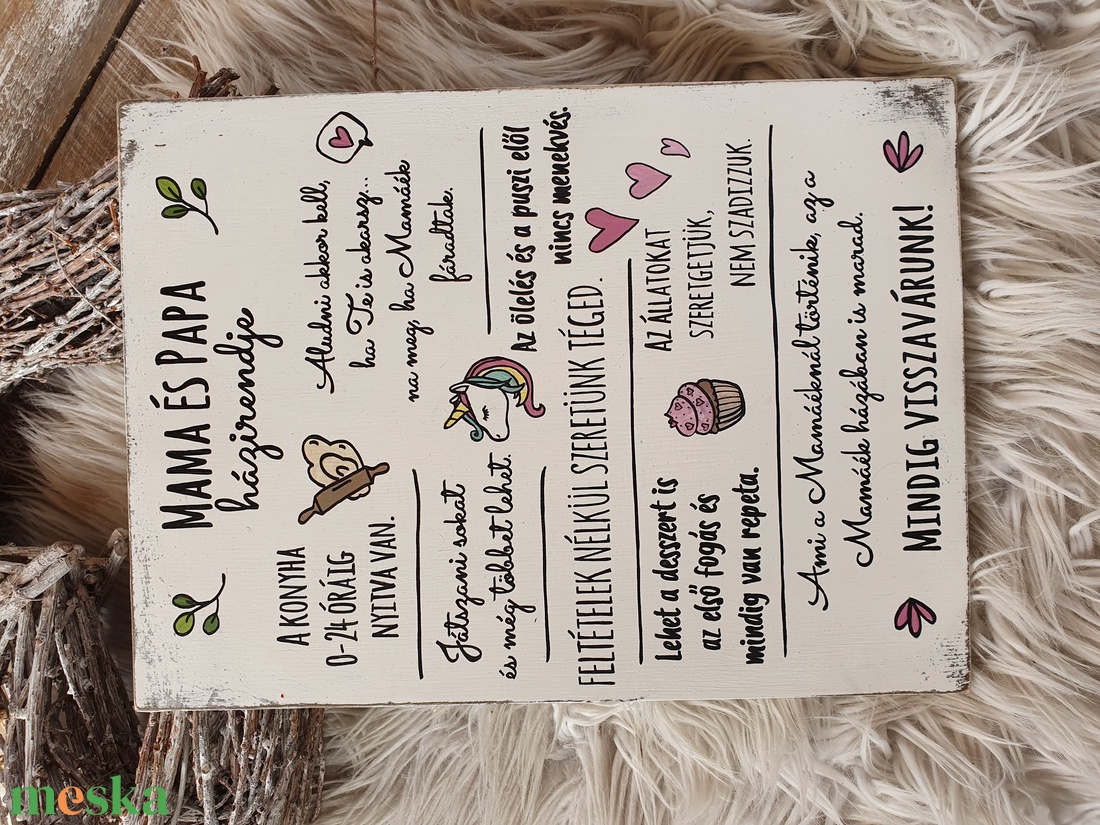 MAMA ÉS PAPA
házirendje
A KONYHA
0-24 ÓRÁIG
NYITVA VAN.
Aludni akkor kell,
ha Te is akarsz...
na meg, ha Mamáék
fáradtak.
Játszani sokat
és még többet lehet.
Az ölelés és a puszi elől
nincs menekvés.
FELTÉTELEK NÉLKÜL SZERETÜNK TÉGED.
Lehet a desszert is
az első fogás és
mindig van repeta.
AZ ÁLLATOKAT
SZERETGETJÜK,
NEM SZADIZZUK.
Ami a Mamáéknál történik, az a
Mamáék házában is marad.
MINDIG VISSZAVÁRUNK!
meska